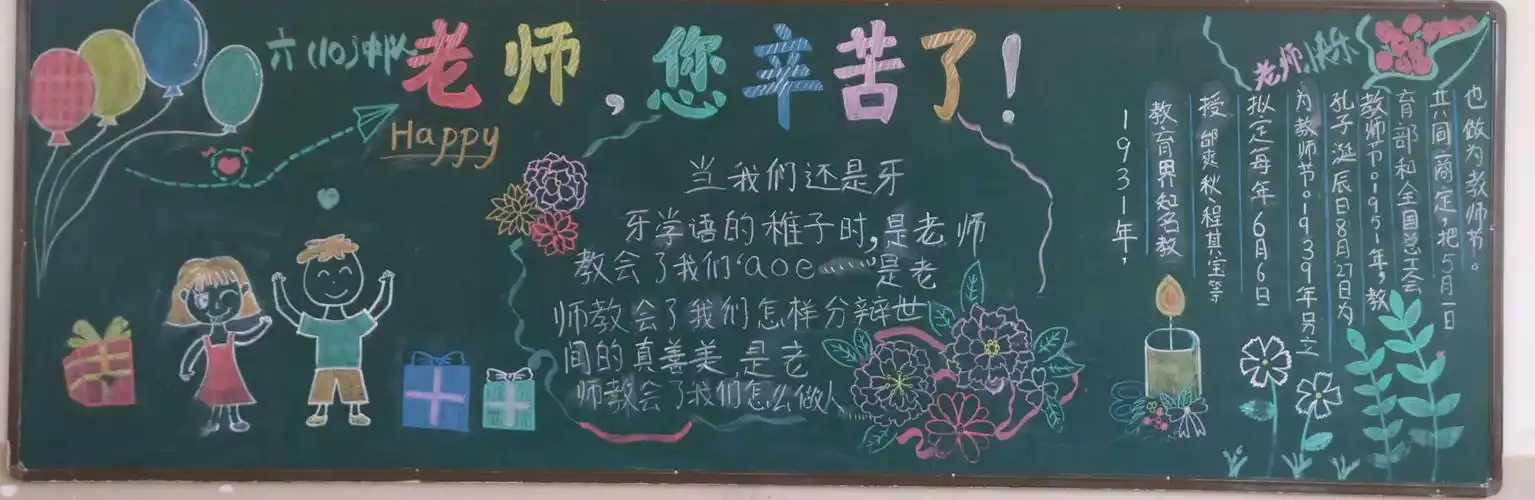 六(10)中队
老师,您辛苦了!
Happy
当我们还是牙
牙学语的稚子时,是老师
教会了我们“aoe……”是老
师教会了我们怎样分辩世
间的真善美,是老
师教会了我们怎么做人……
老师,快乐
1931年,
教育界知名教
授邰爽秋、程其宝等
拟定每年6月6日
为教师节。1939年另立
孔子诞辰日8月27日为
教师节。1951年,教
育部和全国总工会
共同商定,把5月1日
也做为教师节。